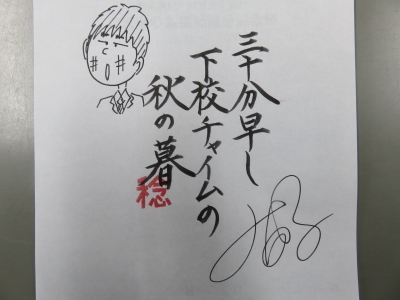 三十分早し
下校チャイムの
秋の暮
稔